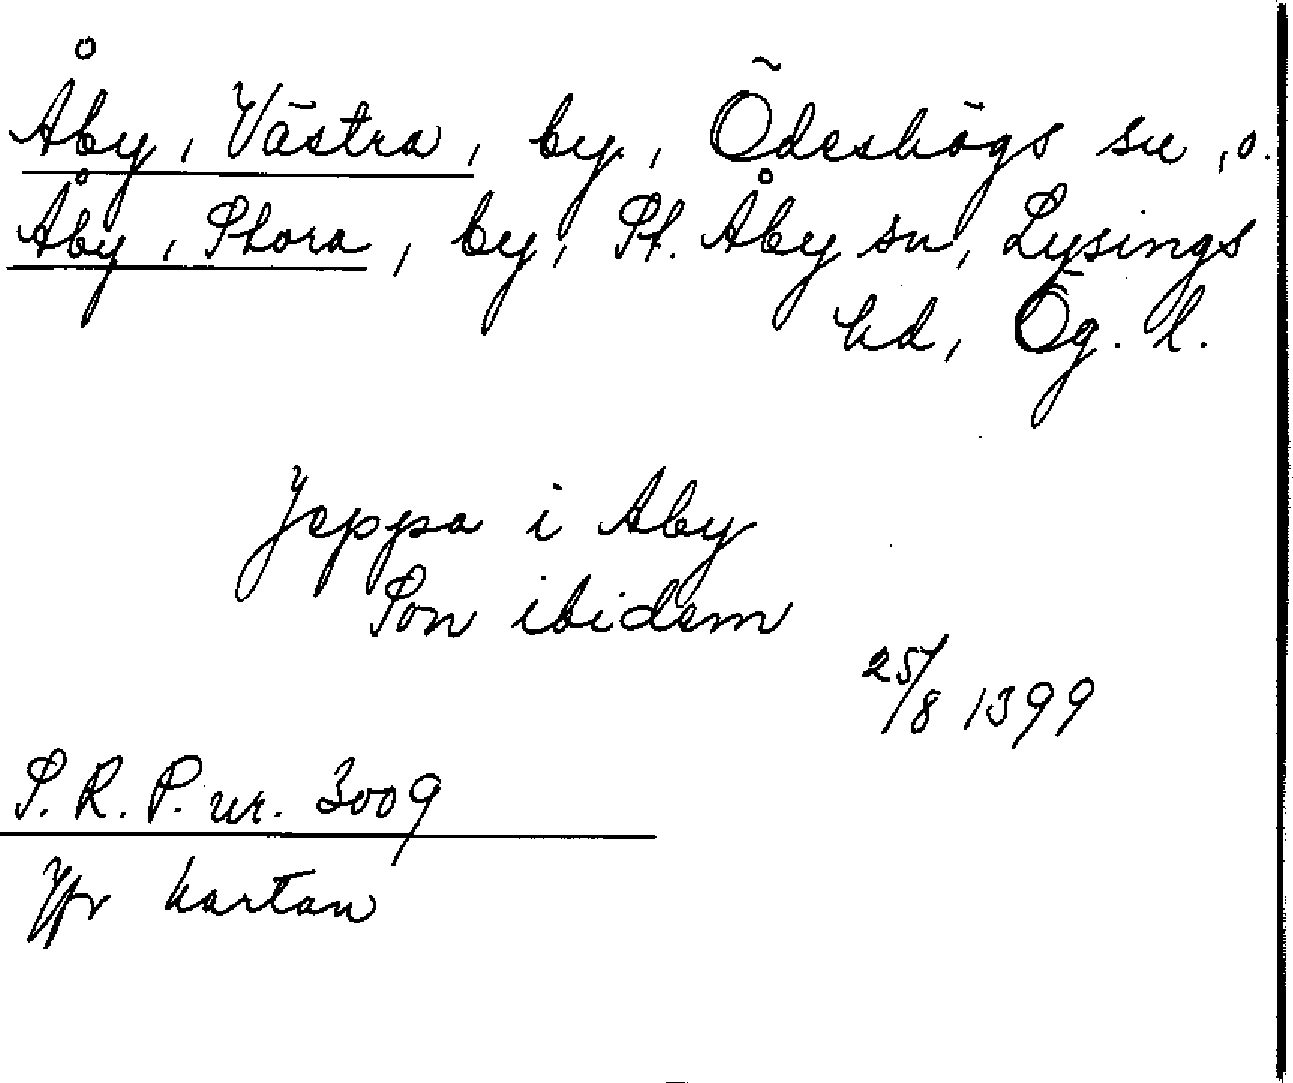 Åby, Västra, by, Ödeshögs sn, o.
Åby, Stora, by, St. Åby sn, Lysings
hd, Ög. l.
Jeppa i Aby
Son ibidem
25/8 1399
S.R.P. nr. 3009
Jfr kartan